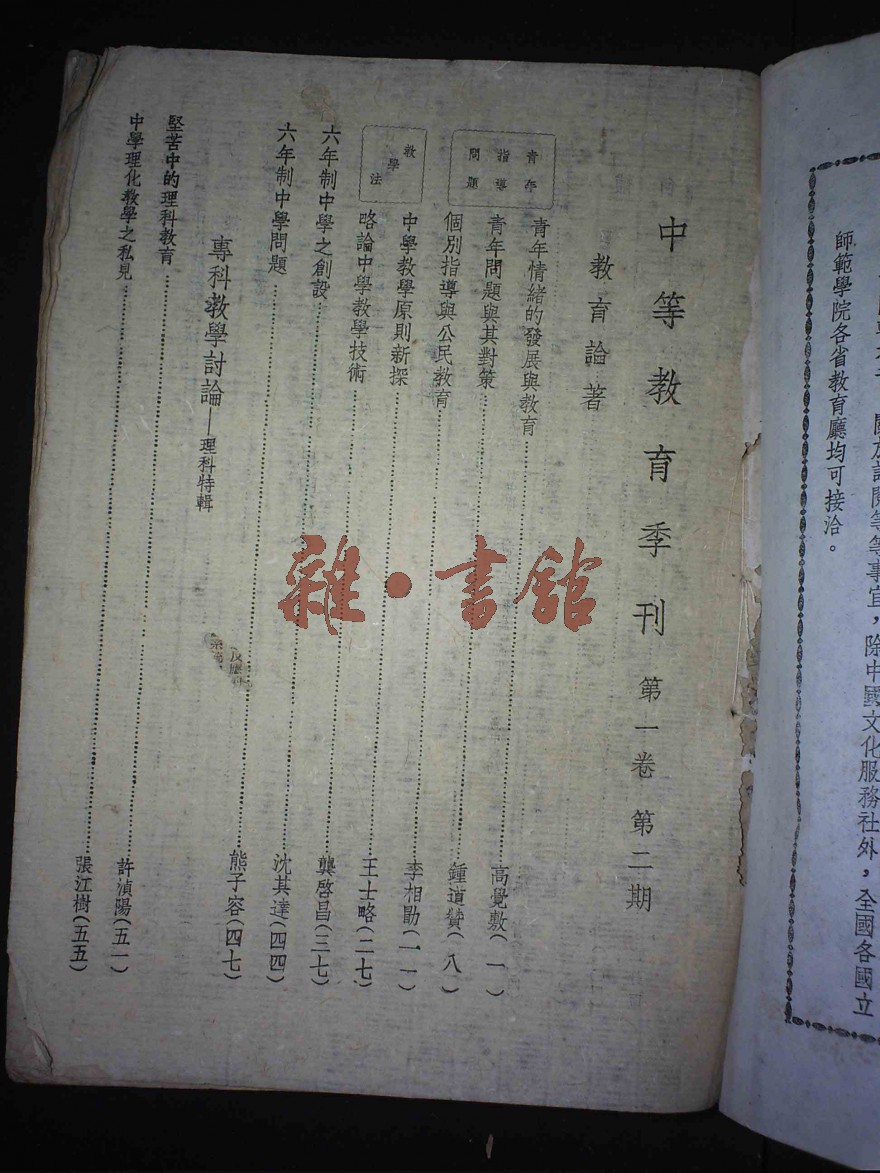 關於訂閱等等事宜，除中國文化服務社外，全國各國立
師範學院各省教育廳均可接洽。
中等教育季刊 第一卷 第二期
教育論著
青年指導問題
青年情緒的發展與教育……高覺敷(一)
青年問題與其對策……鍾道贊(八)
個別指導與公民教育……李相勗(一一)
教學法
中學教學原則新探……王士略(二七)
略論中學教學技術……龔啓昌(三七)
六年制中學之創設……沈其達(四四)
六年制中學問題……熊子容(四七)
專科教學討論—理科特輯
堅苦中的理科教育……許湞陽(五一)
中學理化教學之私見……張江樹(五五)
雜·書館